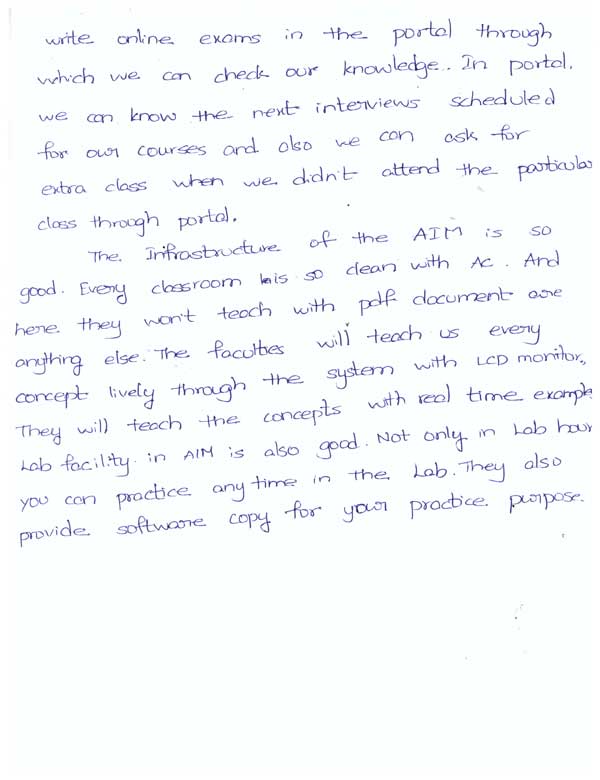 write online exams in the portal through
which we can check our knowledge. In portal.
we can know the next interviews scheduled
for our courses and also we can ask for
extra class when we didn't attend the particular
class through portal.
The Infrastructure of the AIM is so
good. Every classroom is so clean with AC. And
here they won't teach with pdf document are
anything else. The faculties will teach us every
concept lively through the system with LCD monitor,
They will teach the concepts with real time example
Lab facility in AIM is also good. Not only in Lab hour
you can practice any time in the Lab. They also
provide software copy for your practice purpose.